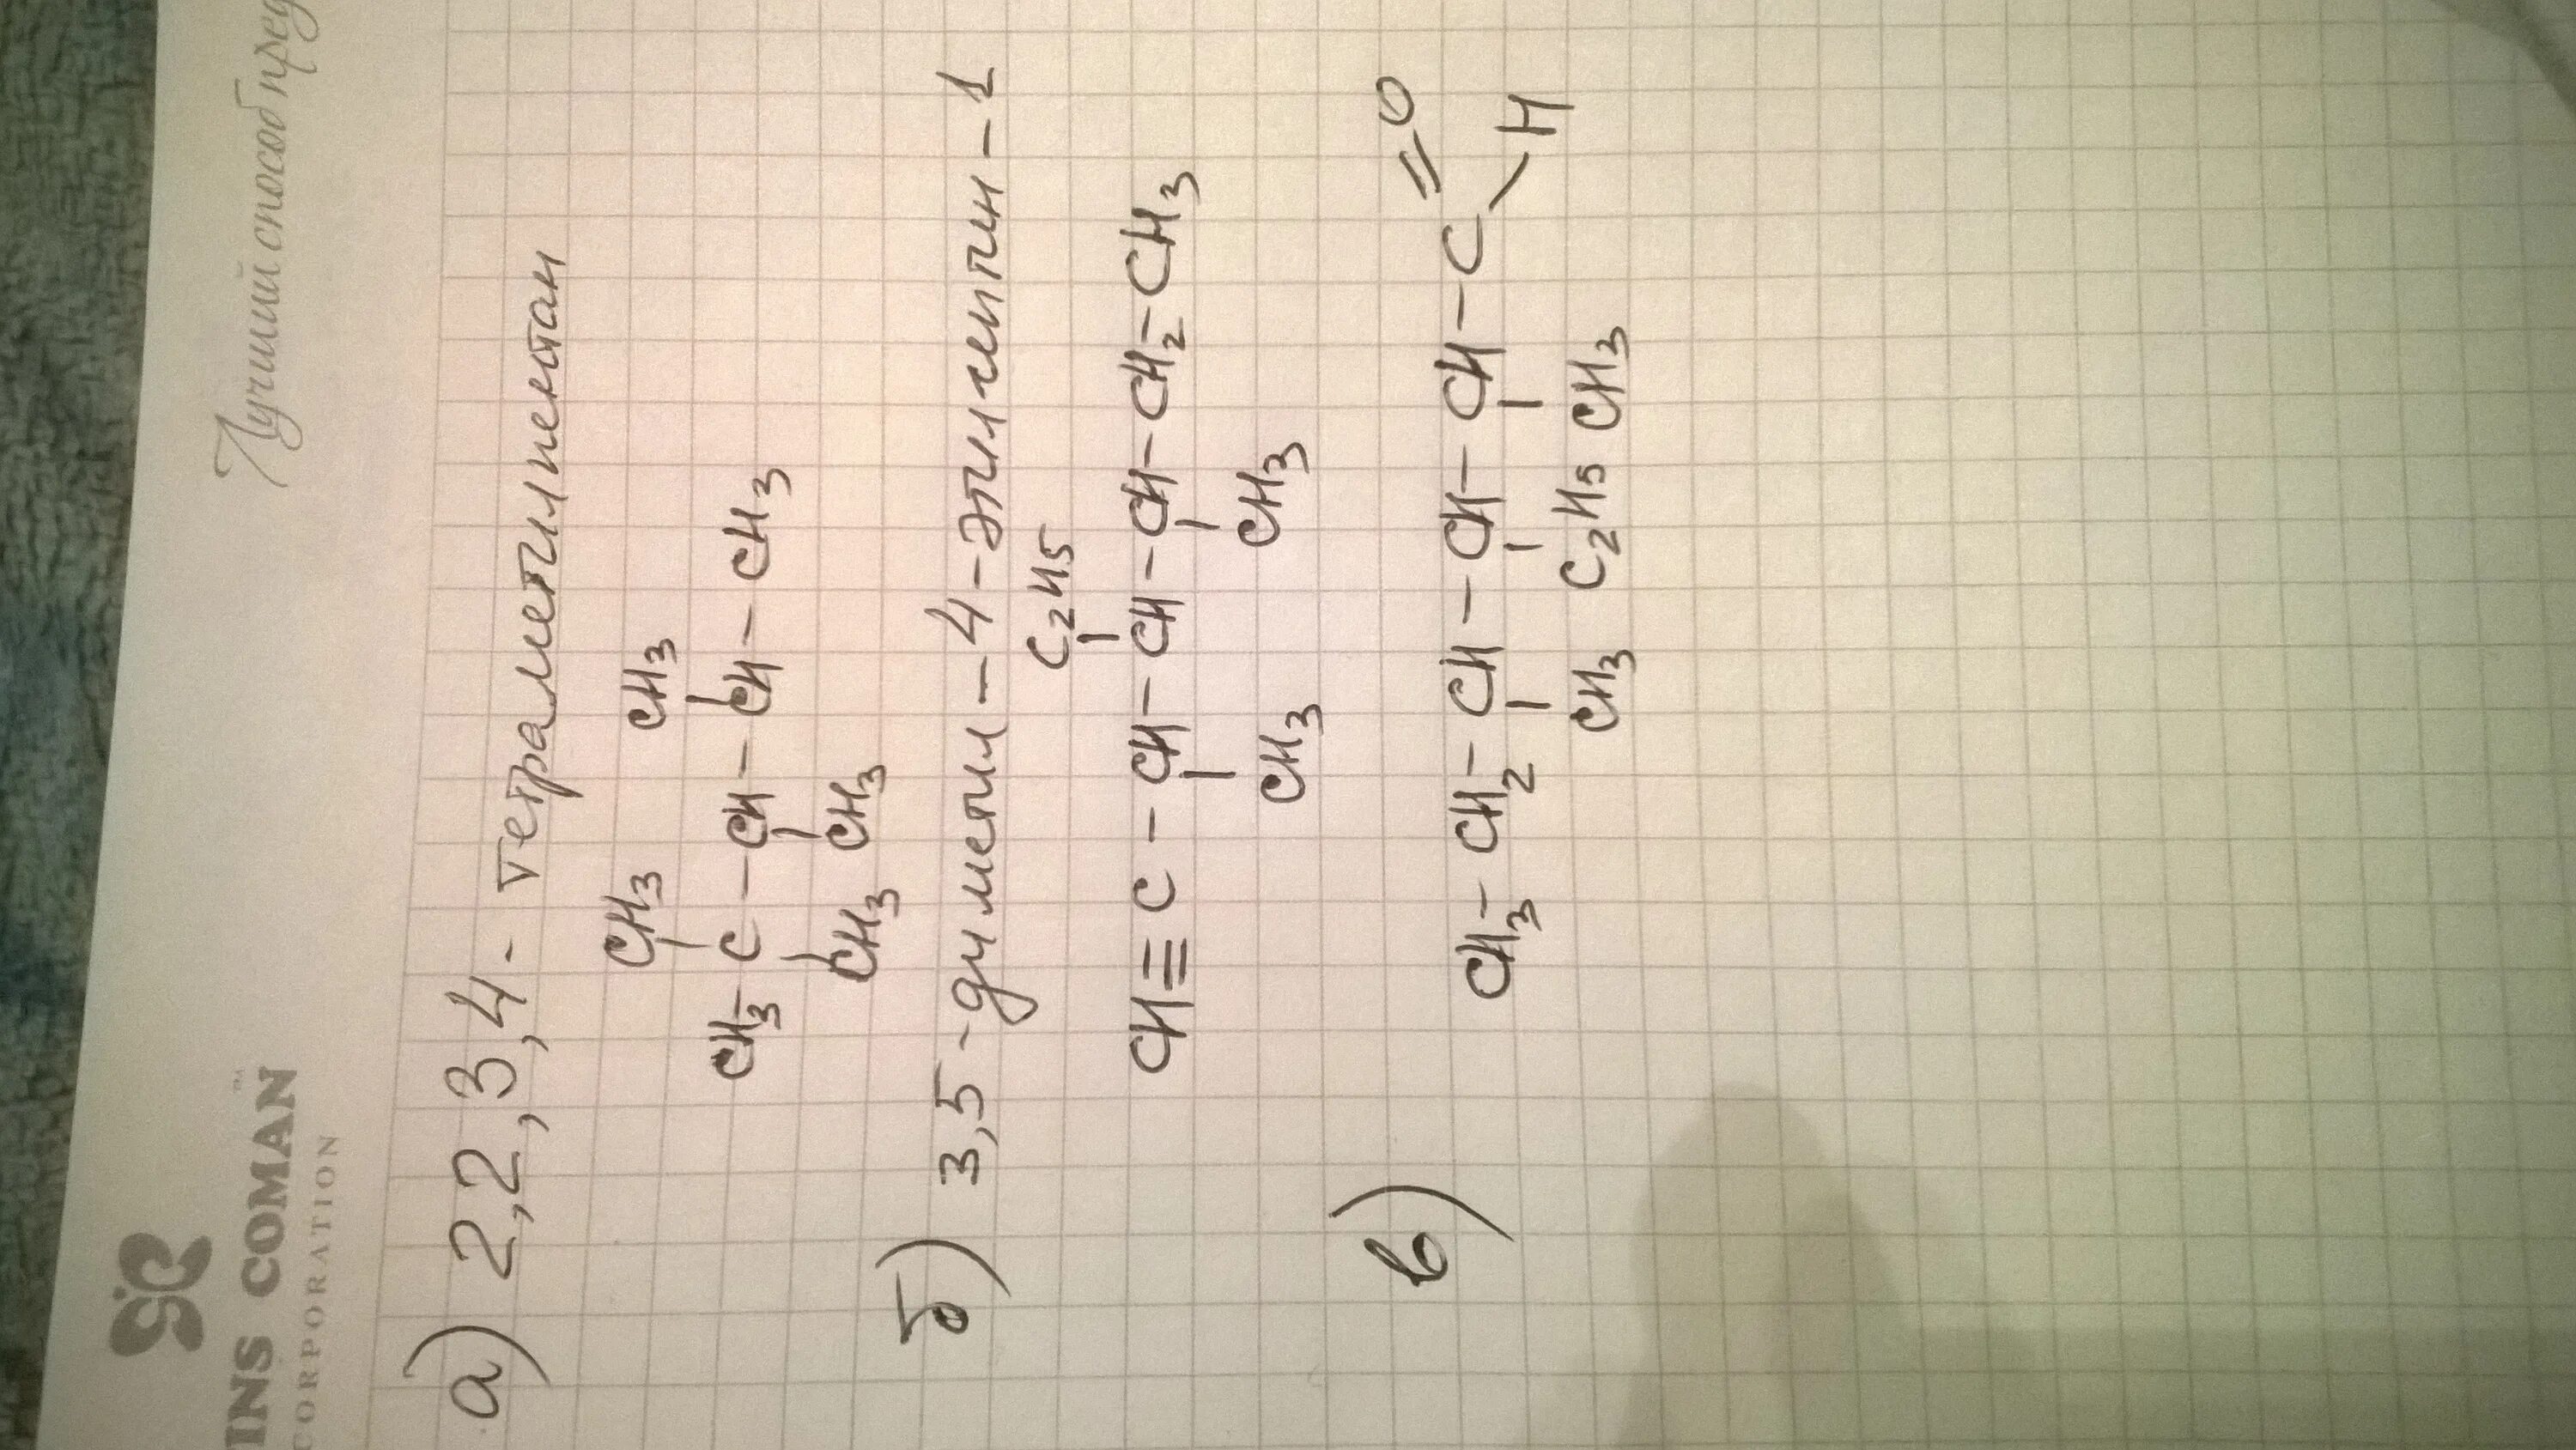 INS COMAN™
CORPORATION
Лучший способ пред
а) 2,2,3,4 - тетраметилпентан
CH3 CH3
CH3 - C - CH - CH - CH3
CH3 CH3
б) 3,5 - диметил - 4 - этилгептин - 1
C2H5
CH ≡ C - CH - CH - CH - CH2 - CH3
CH3 CH3
в)
CH3 - CH2 - CH - CH - CH - C = O
H
CH3 C2H5 CH3